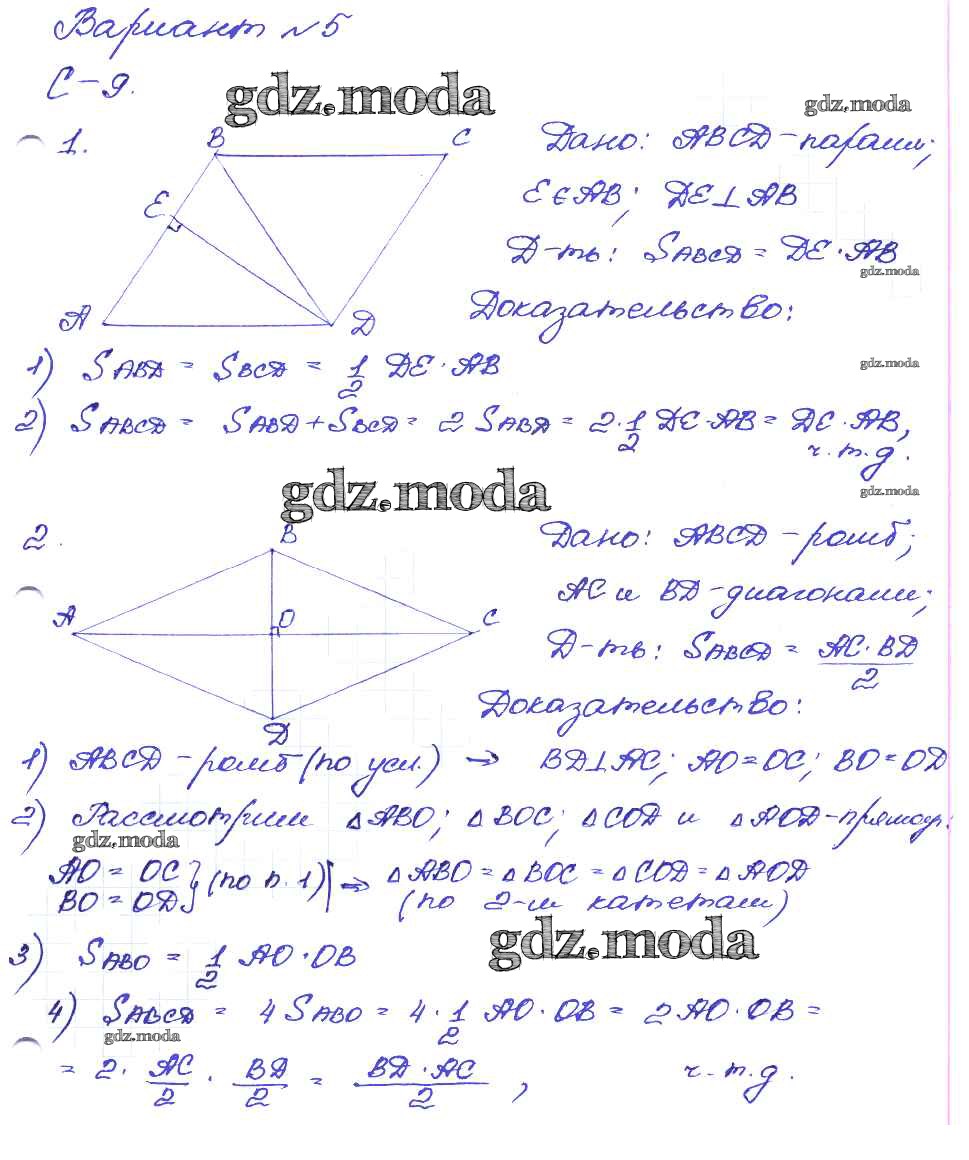 Вариант №5
С-9.
gdz.moda
gdz.moda
1.
B
C
E
A
D
Дано: ABCD - парамм;
E∈AB; DE⊥AB
Д-ть: SABCD = DE·AB
gdz.moda
Доказательство:
1) SABD = SBCD = 1/2 DE·AB
gdz.moda
2) SABCD = SABD + SBCD = 2 SABD = 2·1/2 DE·AB = DE·AB,
ч.т.д.
gdz.moda
gdz.moda
2.
B
A
O
C
D
Дано: ABCD - ромб;
AC и BD - диагонами;
Д-ть: SABCD = AC·BD/2
Доказательство:
1) ABCD - ромб (по усл.) → BD⊥AC; AO=OC; BO=OD
2) Рассмотрим △ABO; △BOC; △COD и △AOD - прямоуг.:
gdz.moda
AO = OC
BO = OD} (по п. 1)| ⇒ △ABO = △BOC = △COD = △AOD
(по 2-м катетам)
gdz.moda
3) SABO = 1/2 AO·OB
4) SABCD = 4 SABO = 4·1/2 AO·OB = 2 AO·OB =
gdz.moda
= 2· AC/2 · BD/2 = BD·AC/2 , ч.т.д.